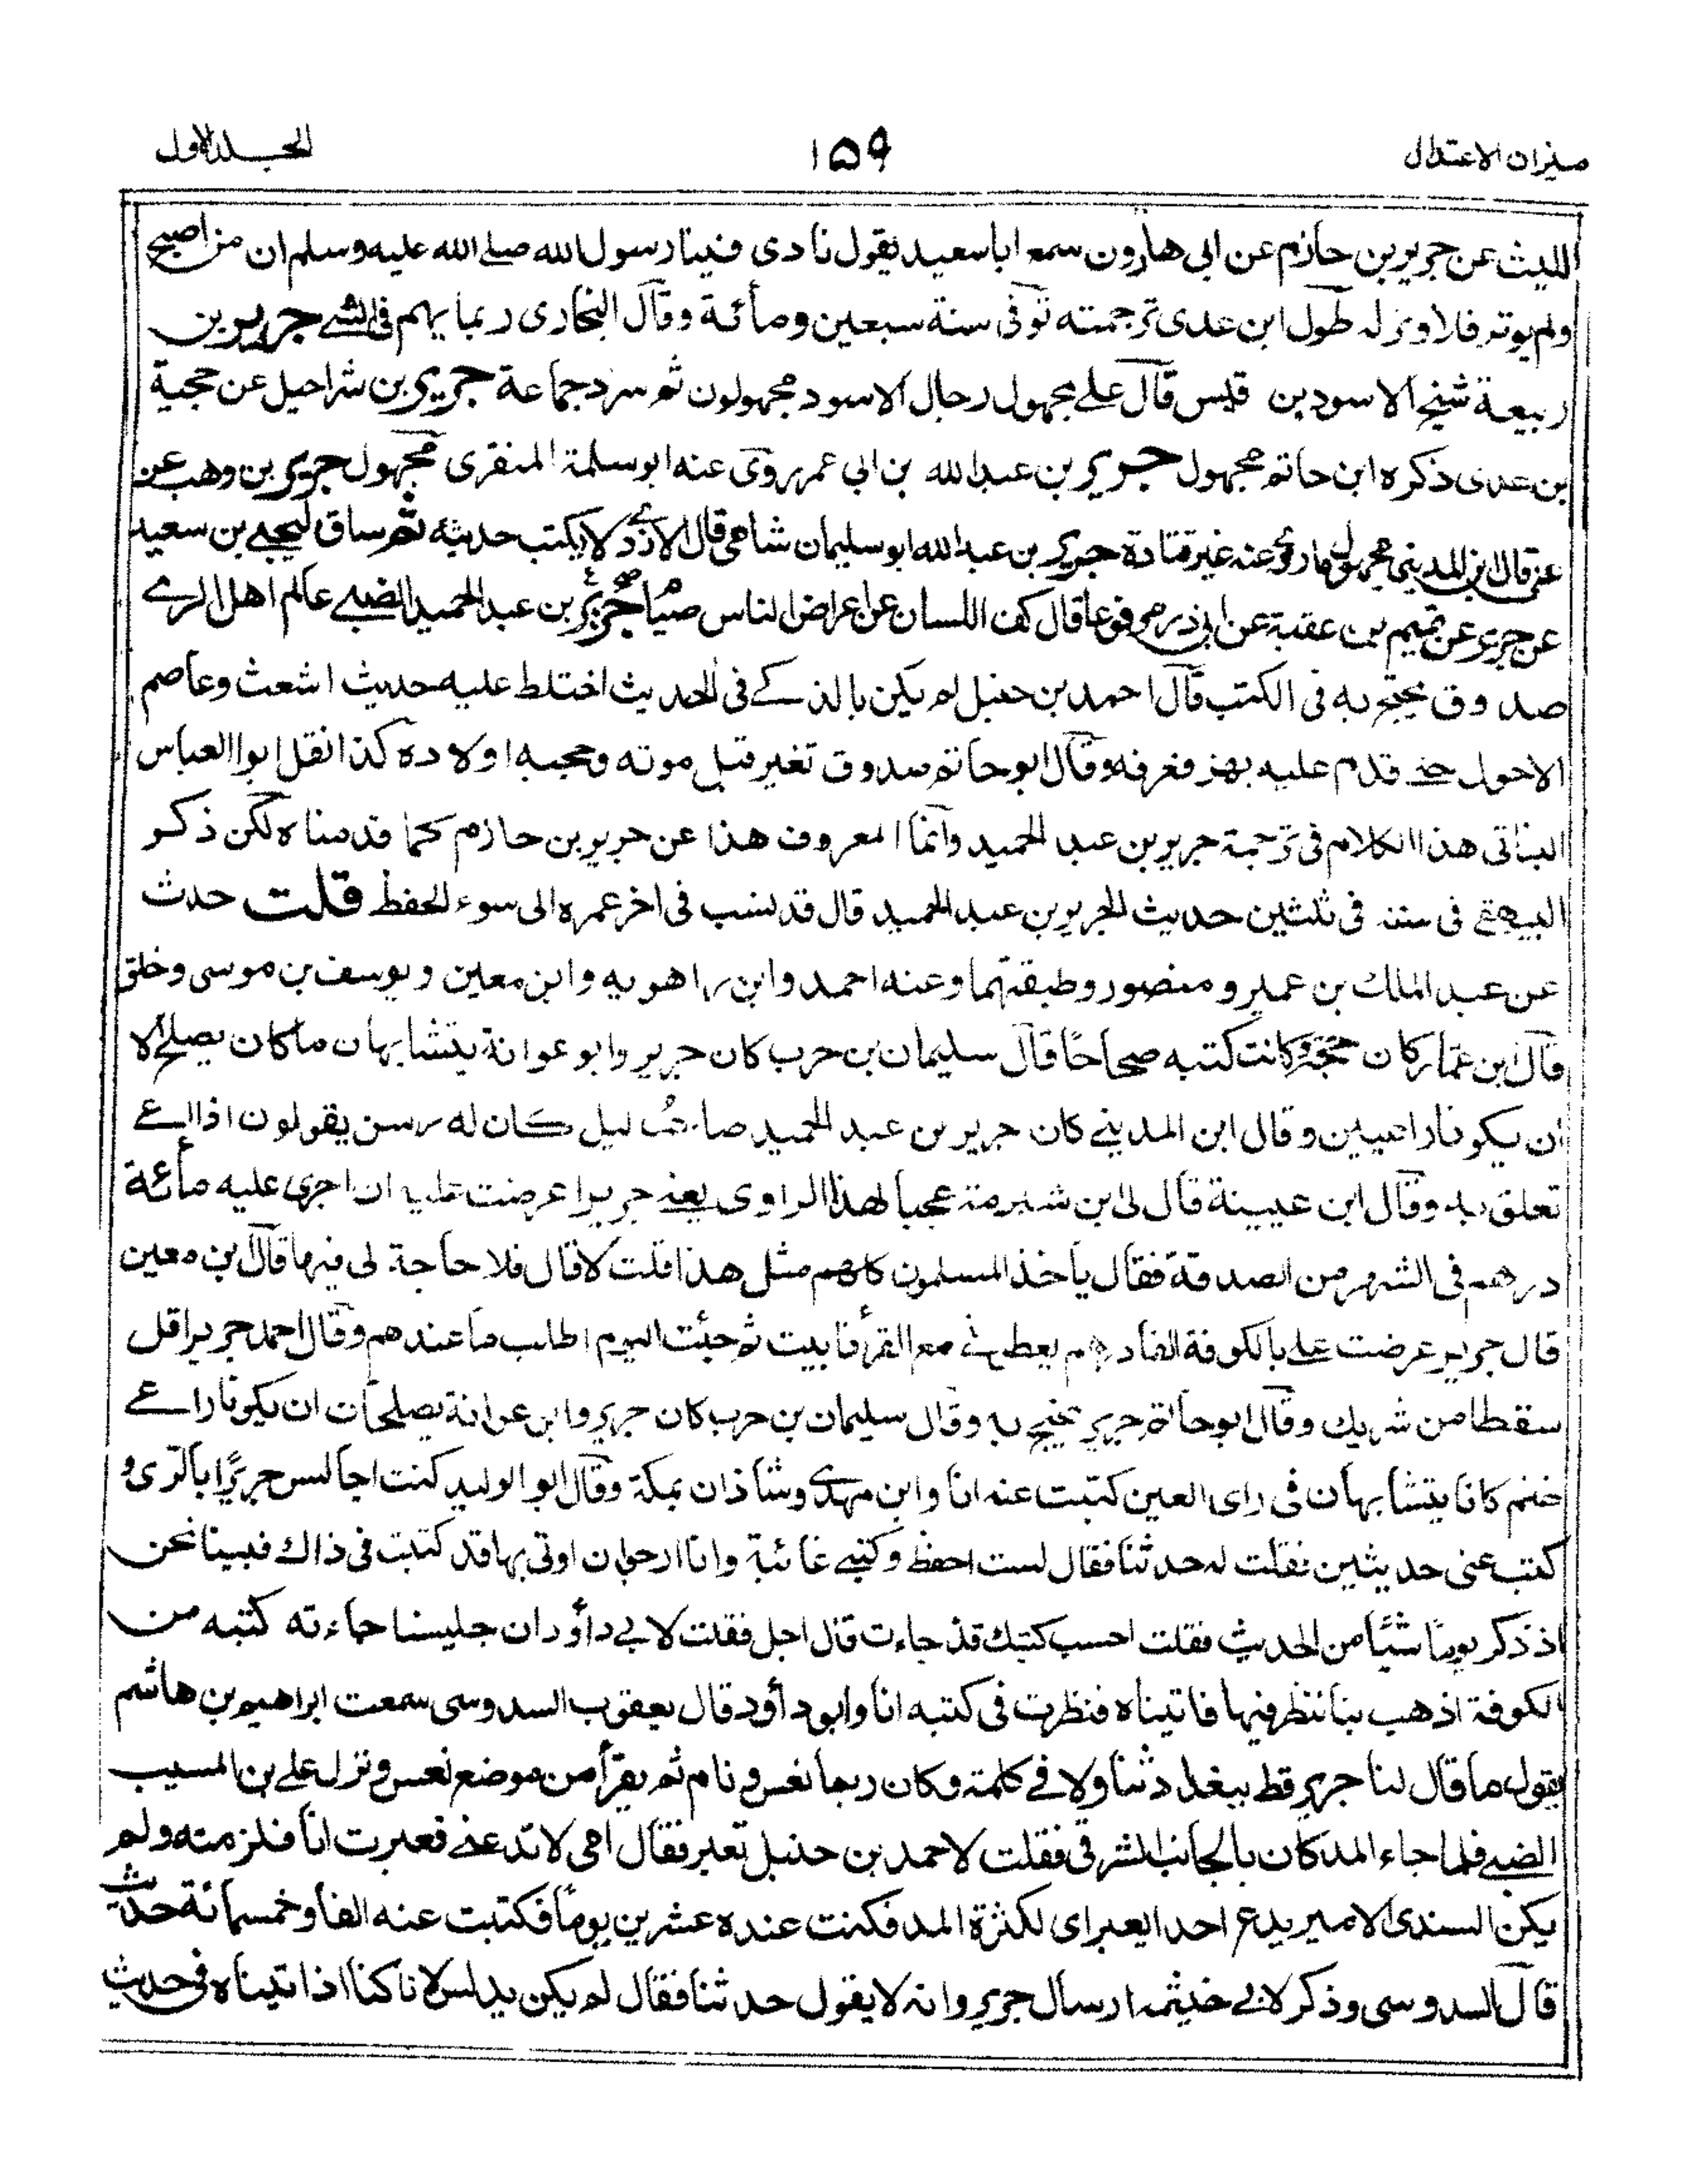 ميزان الاعتدال
۱۵۹
المجلد الاول
الليث عن جرير بن حازم عن ابى هارون سمع ابا سعيد يقول نادى فينا رسول الله صلى الله عليه وسلم ان من اصبح
ولم يوتر فلا وتر له طول ابن عدى ترجمته توفى سنة سبعين ومائة وقال البخارى ربما يهم فى الشئ جرير بن
ربيعة شيخ الاسود بن قيس قال على مجهول رجال الاسود مجهولون ثم سرد جماعة جرير بن شراحيل عن حجية
بن عدى ذكره ابن حاتم مجهول جرير بن عبد الله بن ابى عمر روى عنه ابو سلمة المنقرى مجهول جرير بن وهب عن
قال ابن المدينى مجهول ما روى عنه غير قتادة جرير بن عبد الله ابو سليمان شامى قال الازدى لا يكتب حديثه ثم ساق ليحيى بن سعيد
عن جرير عن تميم بن عقبة عن ابى ذر مرفوعا قال كف اللسان عن اعراض الناس صياح جرير بن عبد الحميد الضبى عالم اهل الرى
صدوق يحتج به فى الكتب قال احمد بن حنبل لم يكن بالذكى فى الحديث اختلط عليه حديث اشعث وعاصم
الاحول حتى قدم عليه بهز فعرفه وقال ابو حاتم صدوق تغير قبل موته وحجبه اولاده كذا نقل ابو العباس
البناتى هذا الكلام فى ترجمة جرير بن عبد الحميد وانما المعروف هذا عن جرير بن حازم كما قدمناه لكن ذكر
البيهقى فى سننه فى ثلثين حديث لجرير بن عبد الحميد قال قد نسب فى اخر عمره الى سوء الحفظ قلت حدث
عن عبد الملك بن عمير و منصور وطبقتهما وعنه احمد وابن راهويه وابن معين ويوسف بن موسى وخلق
قال ابن عمار كان حجة وكانت كتبه صحاحا قال سليمان بن حرب كان جرير وابو عوانة يتشابهان ما كان يصلح الا
ان يكونا راعيين وقال ابن المدينى كان جرير بن عبد الحميد صاحب ليل كان له رسن يقولون اذا اعى
تعلق به وقال ابن عيينة قال لى ابن شبرمة عجبا لهذا الراوى يعنى جريرا عرضت عليه ان اجرى عليه مائة
درهم فى الشهر من الصدقة فقال ياخذ المسلمون كلهم مثل هذا قلت لا قال فلا حاجة لى فيها قال ابن معين
قال جرير عرضت على بالكوفة الفا درهم يعطونى مع القرأ فابيت ثم جئت اليوم اطلب ما عندهم وقال احمد جرير اقل
سقطا من شريك وقال ابو حاتم جرير يحتج به وقال سليمان بن حرب كان جرير وابن عوانة يصلحان ان يكونا راعى
غنم كانا يتشابهان فى راى العين كتبت عنه انا وابن مهدى وشاذان بمكة وقال ابو الوليد كنت اجالس جريرا بالرى و
كتب عنى حديثين فقلت له حدثنا فقال لست احفظ وكتبى غائبة وانا ارجو ان اوتى بها قد كتبت فى ذاك فبينا نحن
اذ ذكر يوما شيئا من الحديث فقلت احسب كتبك قد جاءت قال اجل فقلت لابى داؤد ان جليسنا جاءته كتبه من
الكوفة اذهب بنا ننظر فيها فاتيناه فنظرت فى كتبه انا وابو داؤد قال يعقوب السدوسى سمعت ابراهيم بن هاشم
يقول ما قال لنا جرير قط ببغداد ثنا ولا فى كلمة وكان ربما نعس ونام ثم يقرأ من موضع نعس ونزل على بن المسيب
الضبى فلما جاء المد كان بالجانب الشرقى فقلت لاحمد بن حنبل تعبر فقال امى لا تدعنى فعبرت انا فلزمته ولم
يكن السندى الامير يدع احدا يعبر اى لكثرة المد فكنت عنده عشرين يوما فكتبت عنه الفا وخمسمائة حديث
قال السدوسى وذكر لابى خيثمه ارسال جرير وانه لا يقول حدثنا فقال لم يكن يدلس لانا كنا اذا اتيناه فى حديث